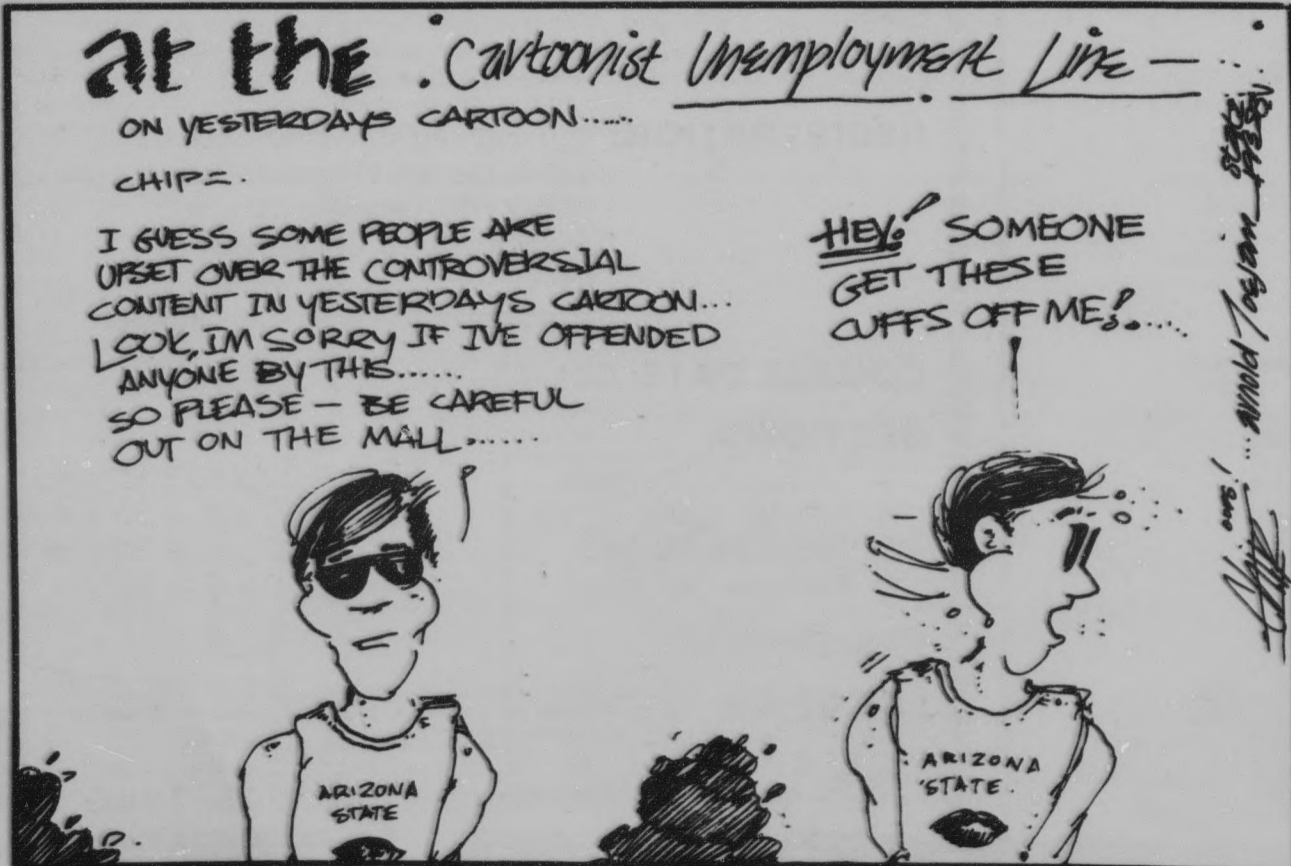 at the. Cartoonist Unemployment Line —
ON YESTERDAYS CARTOON......
CHIP=.
I GUESS SOME PEOPLE ARE
UPSET OVER THE CONTROVERSIAL
CONTENT IN YESTERDAYS CARTOON...
LOOK, IM SORRY IF IVE OFFENDED
ANYONE BY THIS......
SO PLEASE — BE CAREFUL
OUT ON THE MALL......
HEY! SOMEONE
GET THESE
CUFFS OFF ME!.....
ARIZONA
STATE
ARIZONA
STATE.
arnold